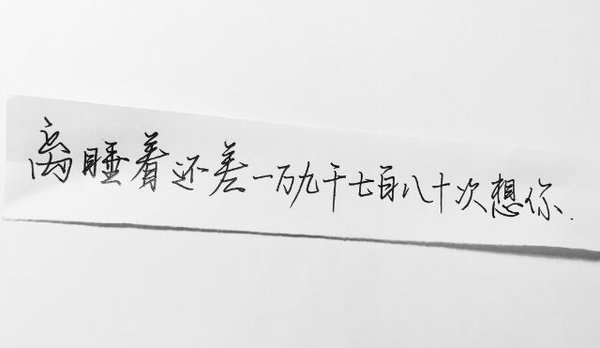 离睡着还差一万九千七百八十次想你.